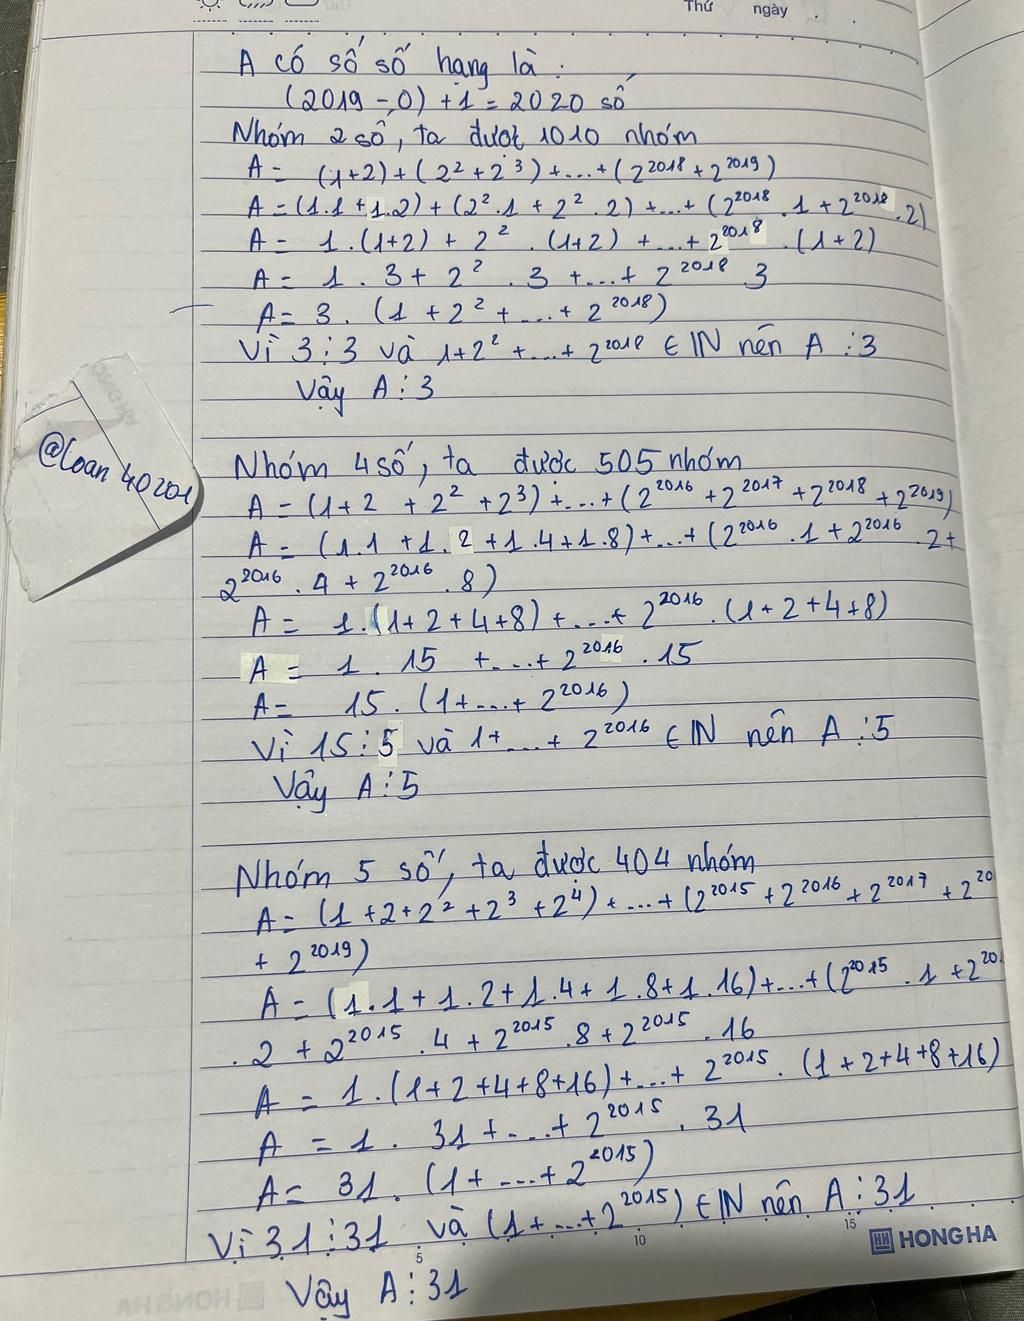 Thứ ngày
A có số số hạng là:
(2019 - 0) + 1 = 2020 số
Nhóm 2 số, ta được 1010 nhóm
A = (1+2) + (2² + 2³) + ... + (2²⁰¹⁸ + 2²⁰¹⁹)
A = (1.1 + 1.2) + (2².1 + 2².2) + ... + (2²⁰¹⁸.1 + 2²⁰¹⁸.2)
A = 1.(1+2) + 2².(1+2) + ... + 2²⁰¹⁸.(1+2)
A = 1.3 + 2².3 + ... + 2²⁰¹⁸ 3
A = 3.(1 + 2² + ... + 2²⁰¹⁸)
Vì 3⋮3 và 1+2² + ... + 2²⁰¹⁸ ∈ IN nên A ⋮3
Vậy A⋮3
@loan 40201
Nhóm 4 số, ta được 505 nhóm
A = (1+2 + 2² + 2³) + ... + (2²⁰¹⁶ + 2²⁰¹⁷ + 2²⁰¹⁸ + 2²⁰¹⁹)
A = (1.1 + 1.2 + 1.4 + 1.8) + ... + (2²⁰¹⁶.1 + 2²⁰¹⁶.2 +
2²⁰¹⁶.4 + 2²⁰¹⁶.8)
A = 1.(1+2+4+8) + ... + 2²⁰¹⁶.(1+2+4+8)
A = 1.15 + ... + 2²⁰¹⁶.15
A = 15.(1 + ... + 2²⁰¹⁶)
Vì 15⋮5 và 1+ ... + 2²⁰¹⁶ ∈ IN nên A ⋮5
Vậy A⋮5
Nhóm 5 số, ta được 404 nhóm
A = (1+2+2² + 2³ + 2⁴) + ... + (2²⁰¹⁵ + 2²⁰¹⁶ + 2²⁰¹⁷ + 2²⁰
+ 2²⁰¹⁹)
A = (1.1 + 1.2 + 1.4 + 1.8 + 1.16) + ... + (2²⁰¹⁵.1 + 2²⁰
.2 + 2²⁰¹⁵.4 + 2²⁰¹⁵.8 + 2²⁰¹⁵.16
A = 1.(1+2+4+8+16) + ... + 2²⁰¹⁵.(1+2+4+8+16)
A = 1.31 + ... + 2²⁰¹⁵.31
A = 31.(1 + ... + 2²⁰¹⁵)
Vì 31⋮31 và (1 + ... + 2²⁰¹⁵) ∈ IN nên A⋮31
5 10 15 HONG HA
Vậy A⋮31